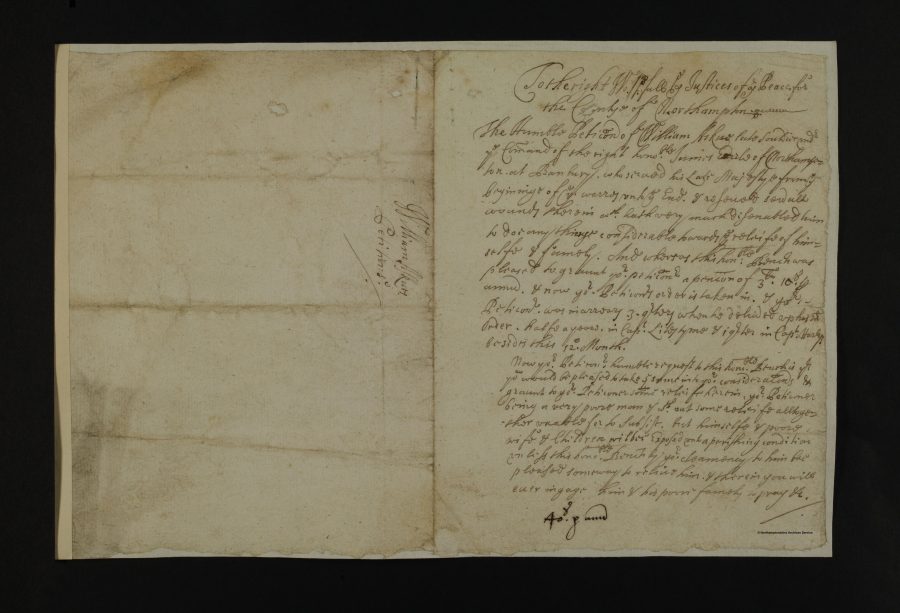 To the right W:pfull ye Justices of ye Peace for
the Countye of Northampton
The humble Peticon of William
ye Comand of the right hono:ble James Earle of Northamp-
ton at Banbury, who served his Late Majesty from ye
beginninge of ye warres untill ye End. & received
wounds therein wch hath very much disenabled him
to doe any thinge considerable towards ye releife of him-
selfe & family. And whereas this hon:ble Bench was
pleased to graunt yor: peticonr a pencon of 3li: 10s. p
annu. & now yor. Peticonrs order is taken in. & yor
Peticonr. was in arreares 3. qters when he delivered up his
order. halfe a yeare in Capt. & in Capt.
besides this 12 Month.
Now yor. Peticonrs. humble request to this hon:ble Bench is yt
you would be pleased to take ye same into yor. consideracons &
graunt to yor. Peticoner some releife herein, yor. Peticoner
being a very poore man & wth.out some releife altoge-
ther unable for to subsist. but himselfe & poore
wife & Children wilbe Exposed unto a perishing condition
unless this hono:ble Bench by yor. Clemency to him bee
pleased someway to releive him. & therein you will
ever ingage him & his poore family to pray &c.
40s. p annu
William
Peticon
© Northamptonshire Archives Service